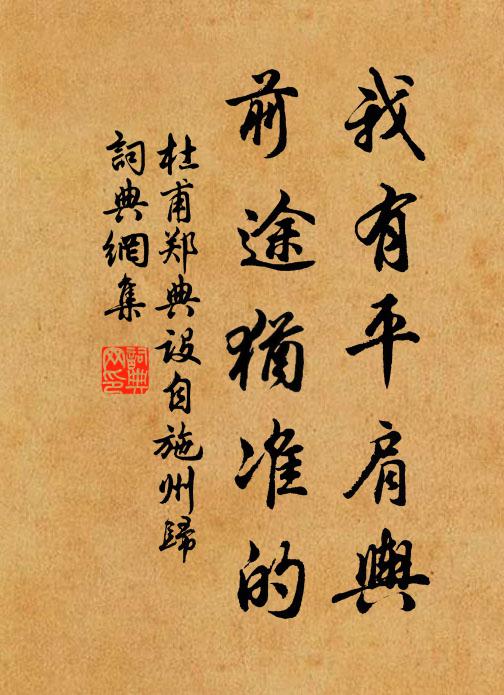 我有平肩輿
前途猶准的
杜甫郑典设自施州歸
詞典網集
詞典网印